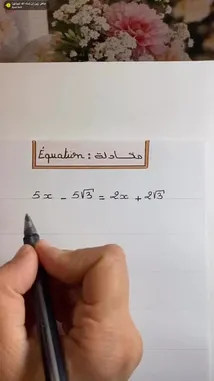 Équation : معادلة
5x - 5√3 = 2x + 2√3